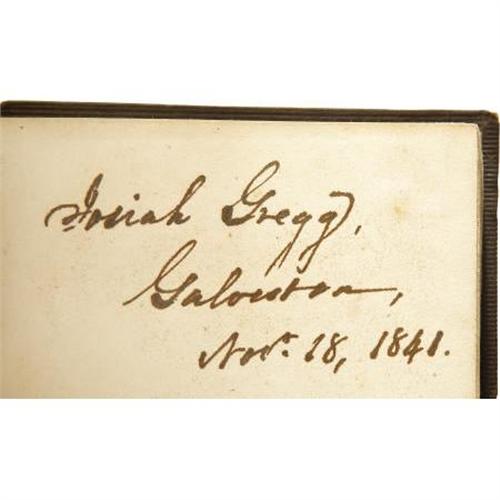 Josiah Gregg,
Galveston,
Novr. 18, 1841.